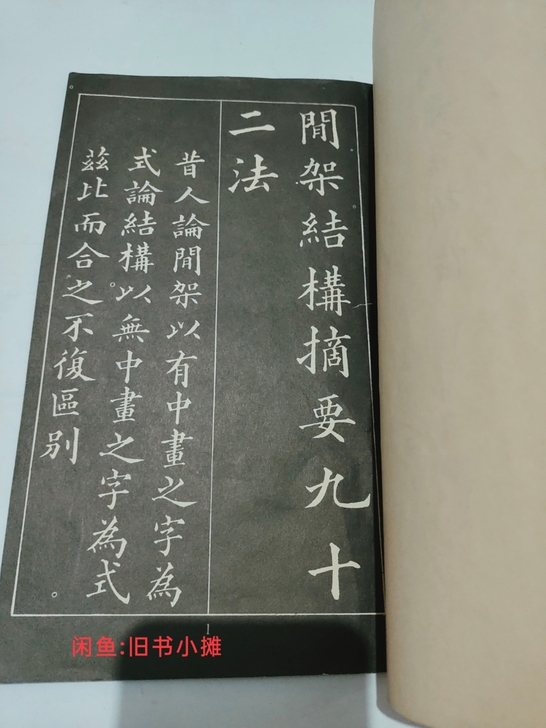 閒架結構摘要九十
二法
昔人論閒架以有中畫之字為
式論結構以無中畫之字為式
茲比而合之不復區別
1
闲鱼:旧书小摊